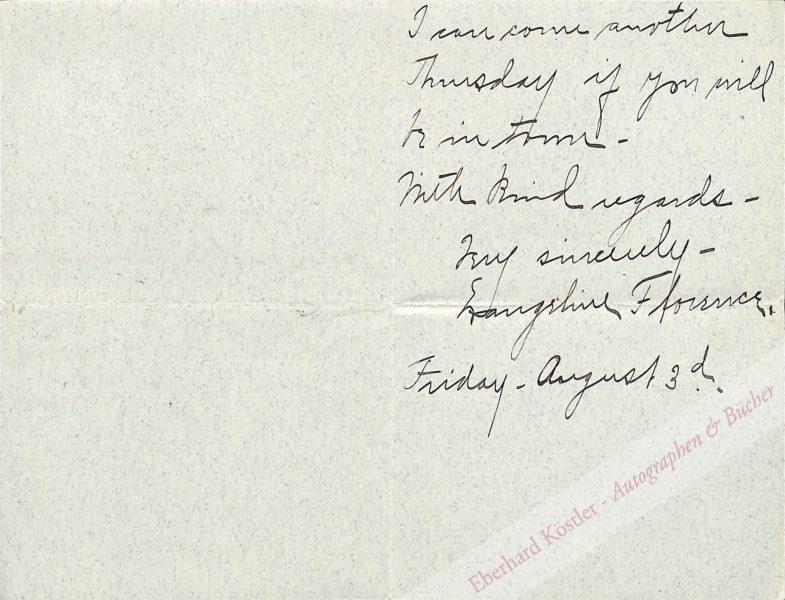 I can come another
Thursday if you will
be in town -
With kind regards -
Very sincerely -
Evangeline Florence.
Friday - August 3d.
Eberhard Köstler - Autographen & Bücher